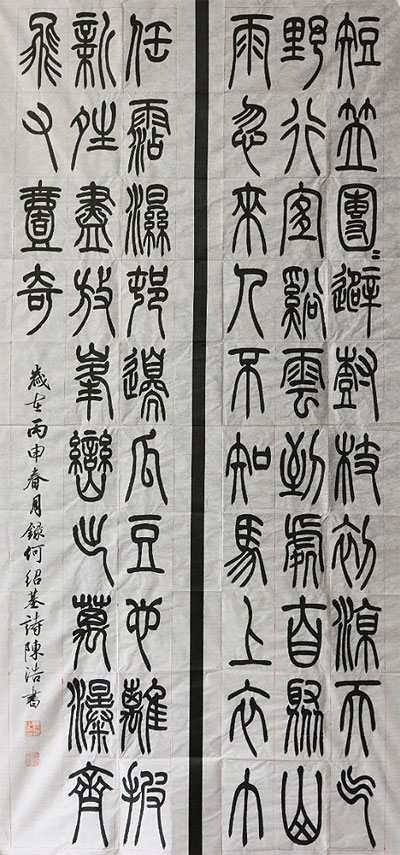 短笠團=避樹枝初涼天气
野行宜谿雲到處自聚山
雨忽來人不知馬上衣巾
任霑濕邨邊瓜豆也離披
新晴盡放峯巒出萬瀑齊
飛又壹奇
歲在丙申春月錄何紹基詩陳浩書